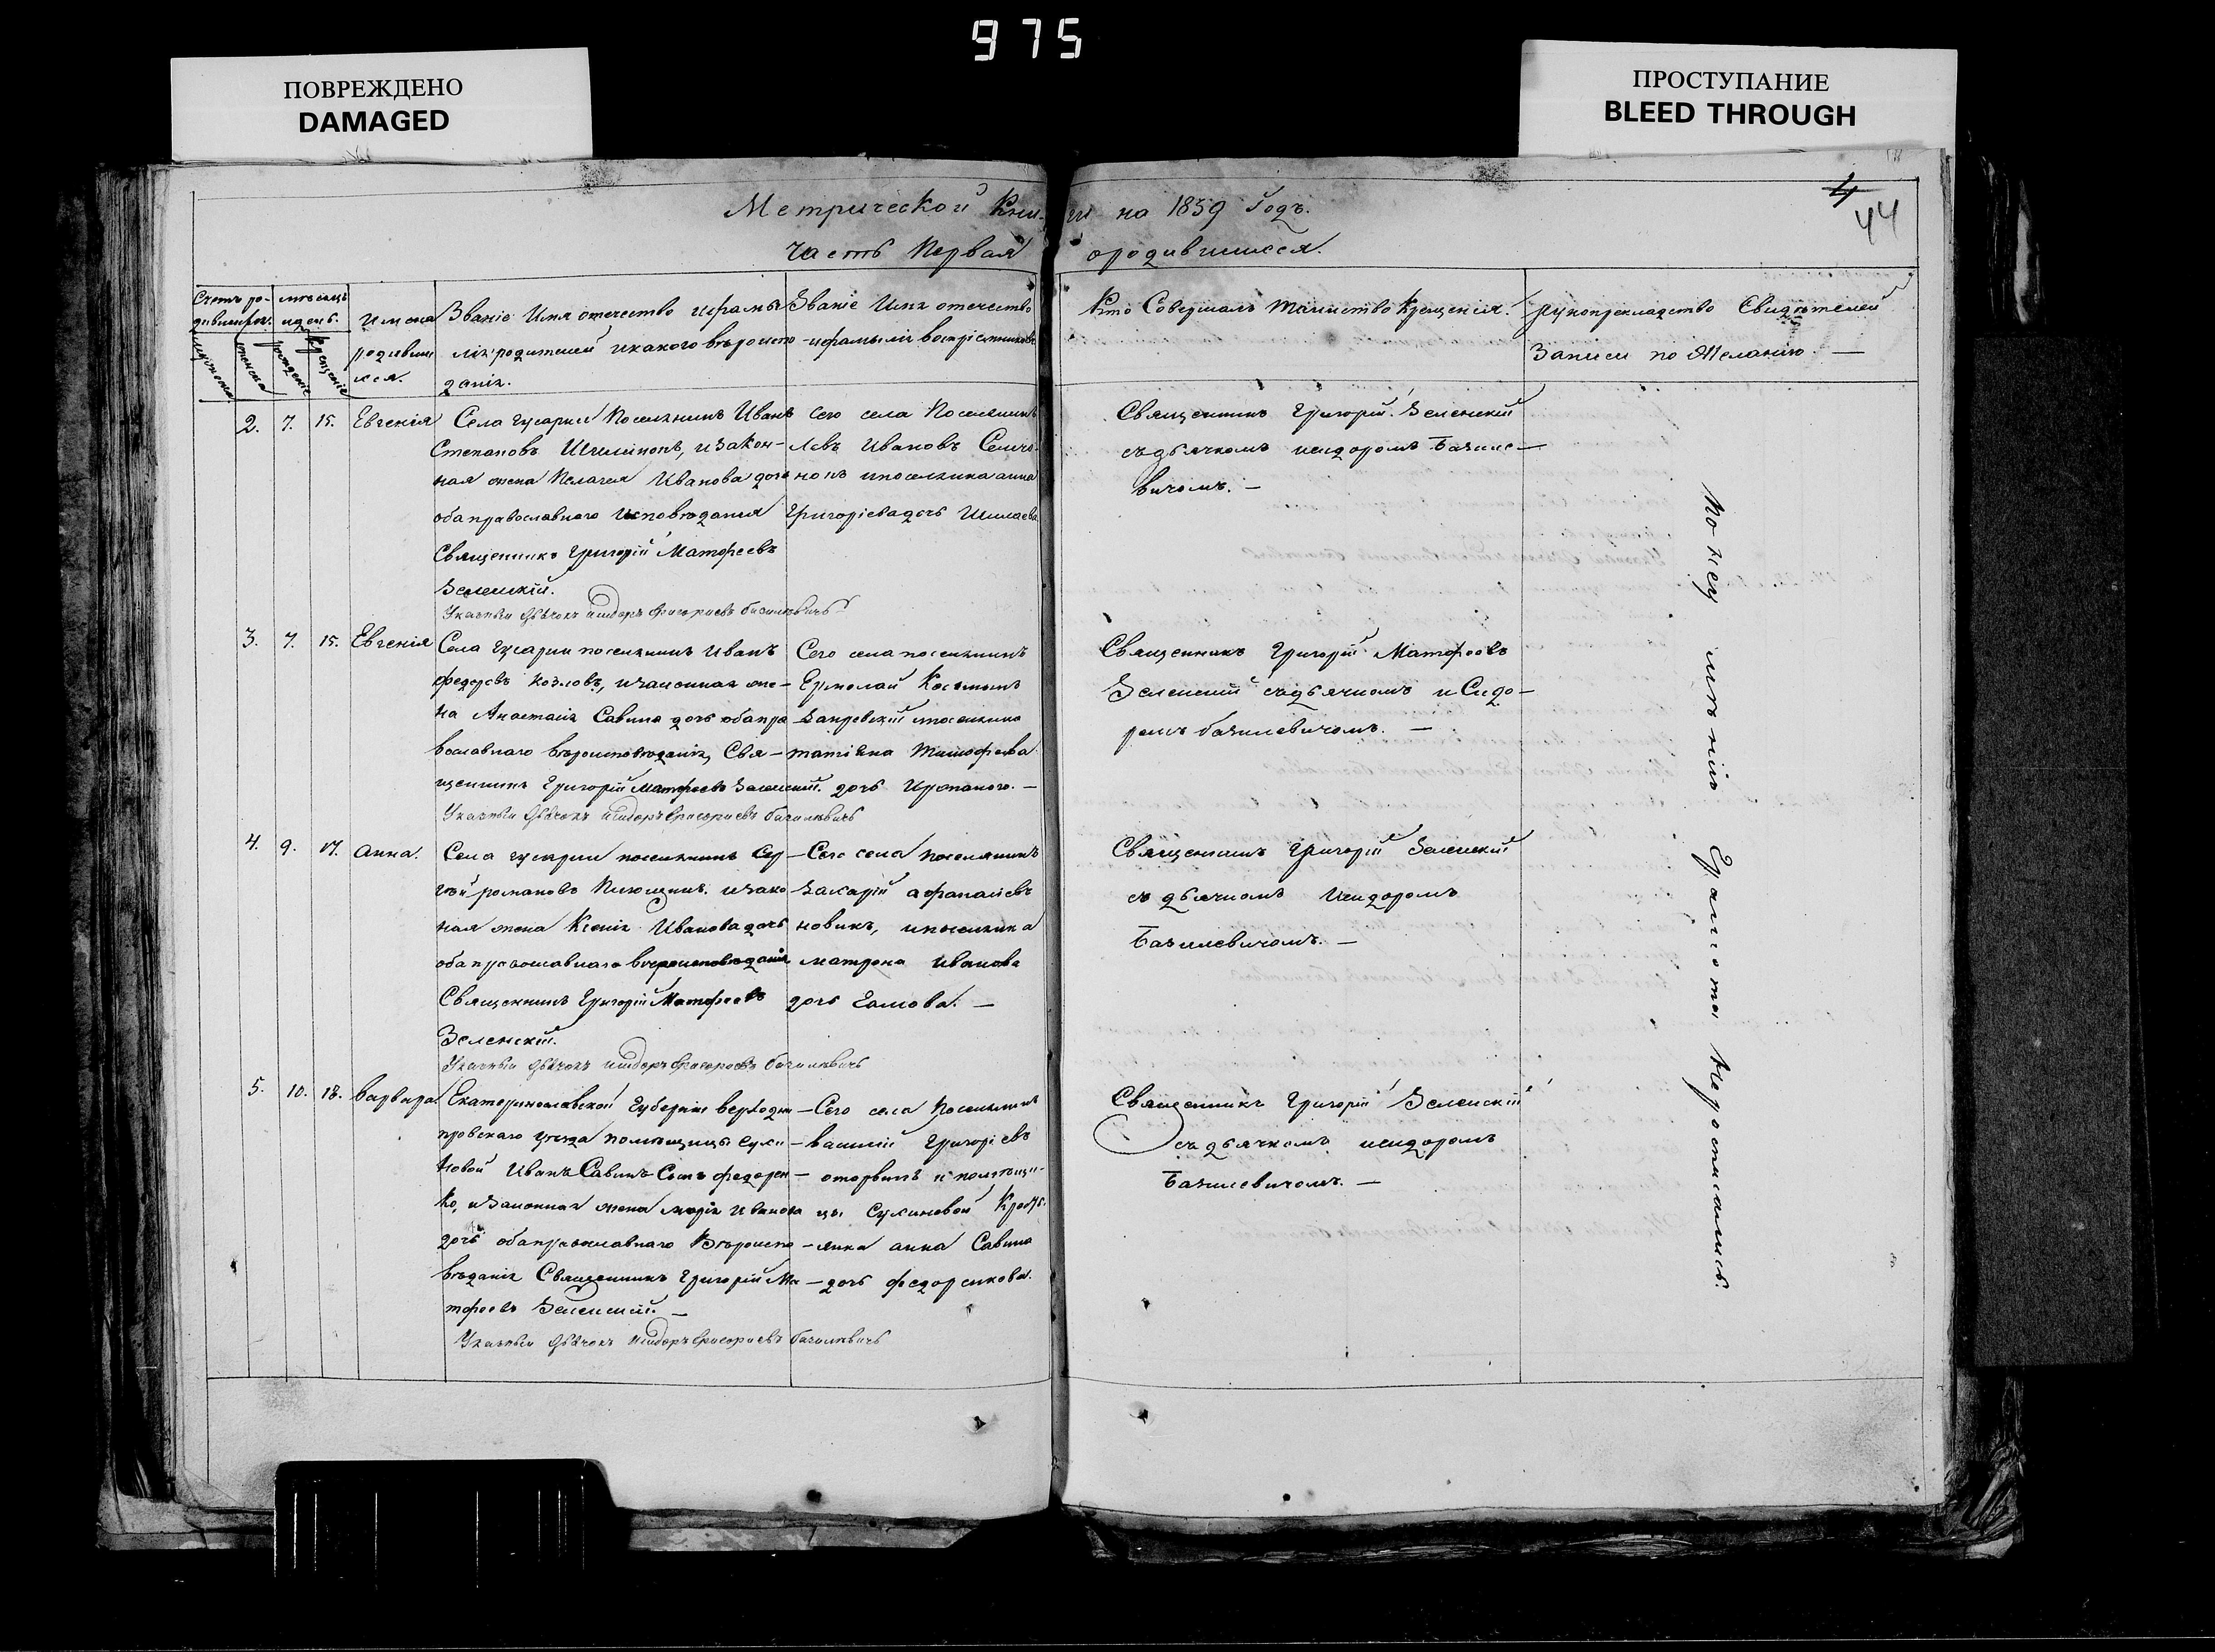 975
ПОВРЕЖДЕНО
DAMAGED
ПРОСТУПАНИЕ
BLEED THROUGH
4
44
Метрической Книги на 1859 Годъ.
Часть Первая ородившихся.
Счетъ родившихся.
мѣсяцъ идень.
мужеска
женска
рожденія
крещенія
Имена родившихся.
Званіе Имя отечество ифамы-
лія родителей икакого вѣроиспо-
данія.
Званіе Имя отечество
-ифамылія воспріемниковъ
Кто Совершалъ таинство Крещенія.
рукоприкладство Свидѣтелей
Записи по Желанію. —
2. 7. 15. Евгенія
Села Гусарки Поселянинъ Иванъ
Степановъ изакон-
ная жена Пелагея Иванова дочь
оба православного Исповѣданія
Священникъ Григорій Матфеевъ
Зеленскій.
Указный Дьячокъ исидоръ Григориевъ базилевичъ
Сего села Поселянинъ
Левъ Ивановъ
ипоселянка анна
Григоріева дочь
Священникъ Григорій Зеленскій
съдьячкомъ исидоромъ Базиле—
вичомъ. —
3. 7. 15. Евгенія
Села Гусарки поселянинъ Иванъ
федоровъ Козловъ, изаконная же-
на Анастасія Савина дочь обапра
вославнаго вѣроисповѣданія, Свя-
щенникъ Григорій Матфеевъ Зеленскій.
Указный Дьячокъ исидоръ Григориевъ базилевичъ
Сего села поселянинъ
Ермолай Косьминъ
ипоселянка
татіяна Тимофеева
дочь —
Священникъ Григорій Матфеевъ
Зеленский съдьячкомъ иСидо—
ромъ базилевичомъ. —
4. 9. 17. Анна.
Села гусарки поселянинъ Сер-
гѣй романовъ изако
ная жена Ксенія Иванова дочь
оба православнаго вѣроисповѣданія
Священникъ Григорій Матфеевъ
Зеленскій.
Указный Дьячокъ исидоръ Григориевъ базилевичъ
Сего села поселянинъ
Захарій афанасіевъ
новикъ, ипоселянка
матрона Иванова
дочь —
Священникъ Григорій Зеленский
съ дьячкомъ Исидоромъ
Базилевичомъ. —
5. 10. 18. Варвара.
Екатеринославской Губерніи верходне—
провскаго уезда помѣщицы Сухи—
новой Иванъ Савинъ Сынъ федорен—
ко, изаконная жена марія Иванова
дочь оба православнаго Вѣроиспо—
вѣданія Священникъ Григорій Ма—
тфеевъ Зеленский. —
Указный Дьячокъ исидоръ Григориевъ базилевичъ
Сего села Поселянинъ
василій Григоріевъ
и помѣщи-
цы Сухиновой Кресть-
янка анна Савина
дочь федоренкова.
Священникъ Григорій Зеленскій
съдьячкомъ исидоромъ
Базилевичомъ. —
По неу мѣнію Грамоти Неросписались.